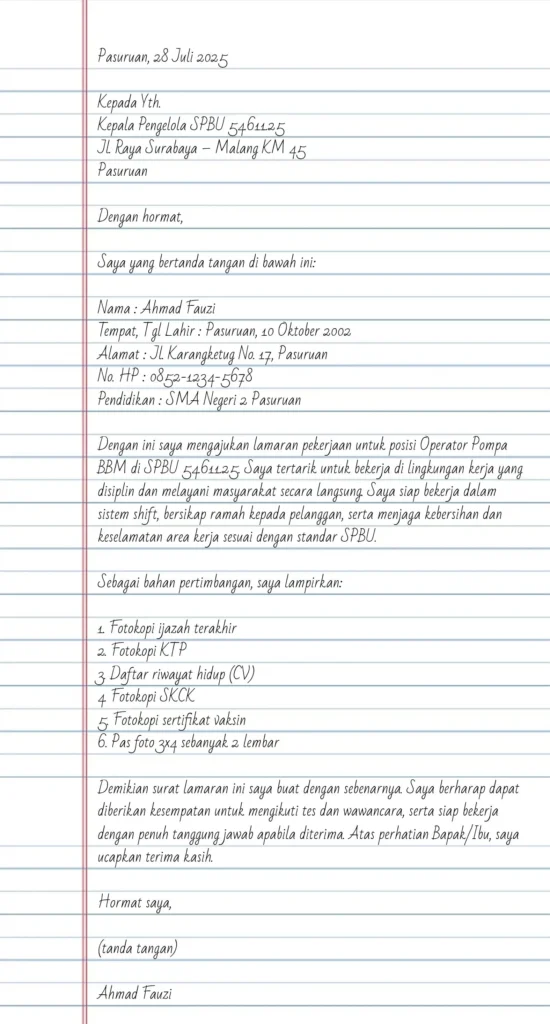 Pasuruan, 28 Juli 2025
Kepada Yth.
Kepala Pengelola SPBU 5461125
Jl. Raya Surabaya – Malang KM 45
Pasuruan
Dengan hormat,
Saya yang bertanda tangan di bawah ini:
Nama : Ahmad Fauzi
Tempat, Tgl Lahir : Pasuruan, 10 Oktober 2002
Alamat : Jl. Karangketug No. 17, Pasuruan
No. HP : 0852-1234-5678
Pendidikan : SMA Negeri 2 Pasuruan
Dengan ini saya mengajukan lamaran pekerjaan untuk posisi Operator Pompa
BBM di SPBU 5461125. Saya tertarik untuk bekerja di lingkungan kerja yang
disiplin dan melayani masyarakat secara langsung. Saya siap bekerja dalam
sistem shift, bersikap ramah kepada pelanggan, serta menjaga kebersihan dan
keselamatan area kerja sesuai dengan standar SPBU.
Sebagai bahan pertimbangan, saya lampirkan:
1. Fotokopi ijazah terakhir
2. Fotokopi KTP
3. Daftar riwayat hidup (CV)
4. Fotokopi SKCK
5. Fotokopi sertifikat vaksin
6. Pas foto 3x4 sebanyak 2 lembar
Demikian surat lamaran ini saya buat dengan sebenarnya. Saya berharap dapat
diberikan kesempatan untuk mengikuti tes dan wawancara, serta siap bekerja
dengan penuh tanggung jawab apabila diterima. Atas perhatian Bapak/Ibu, saya
ucapkan terima kasih.
Hormat saya,
(tanda tangan)
Ahmad Fauzi